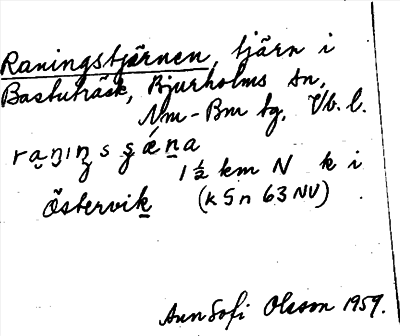 Raningstjärnen, tjärn i
Bastuträsk, Bjurholms sn,
Nm-Bm tg, Vb. l.
1 ½ km N k i
Östervik (k Sn 63 NV)
AnnSofi Olsson 1959.